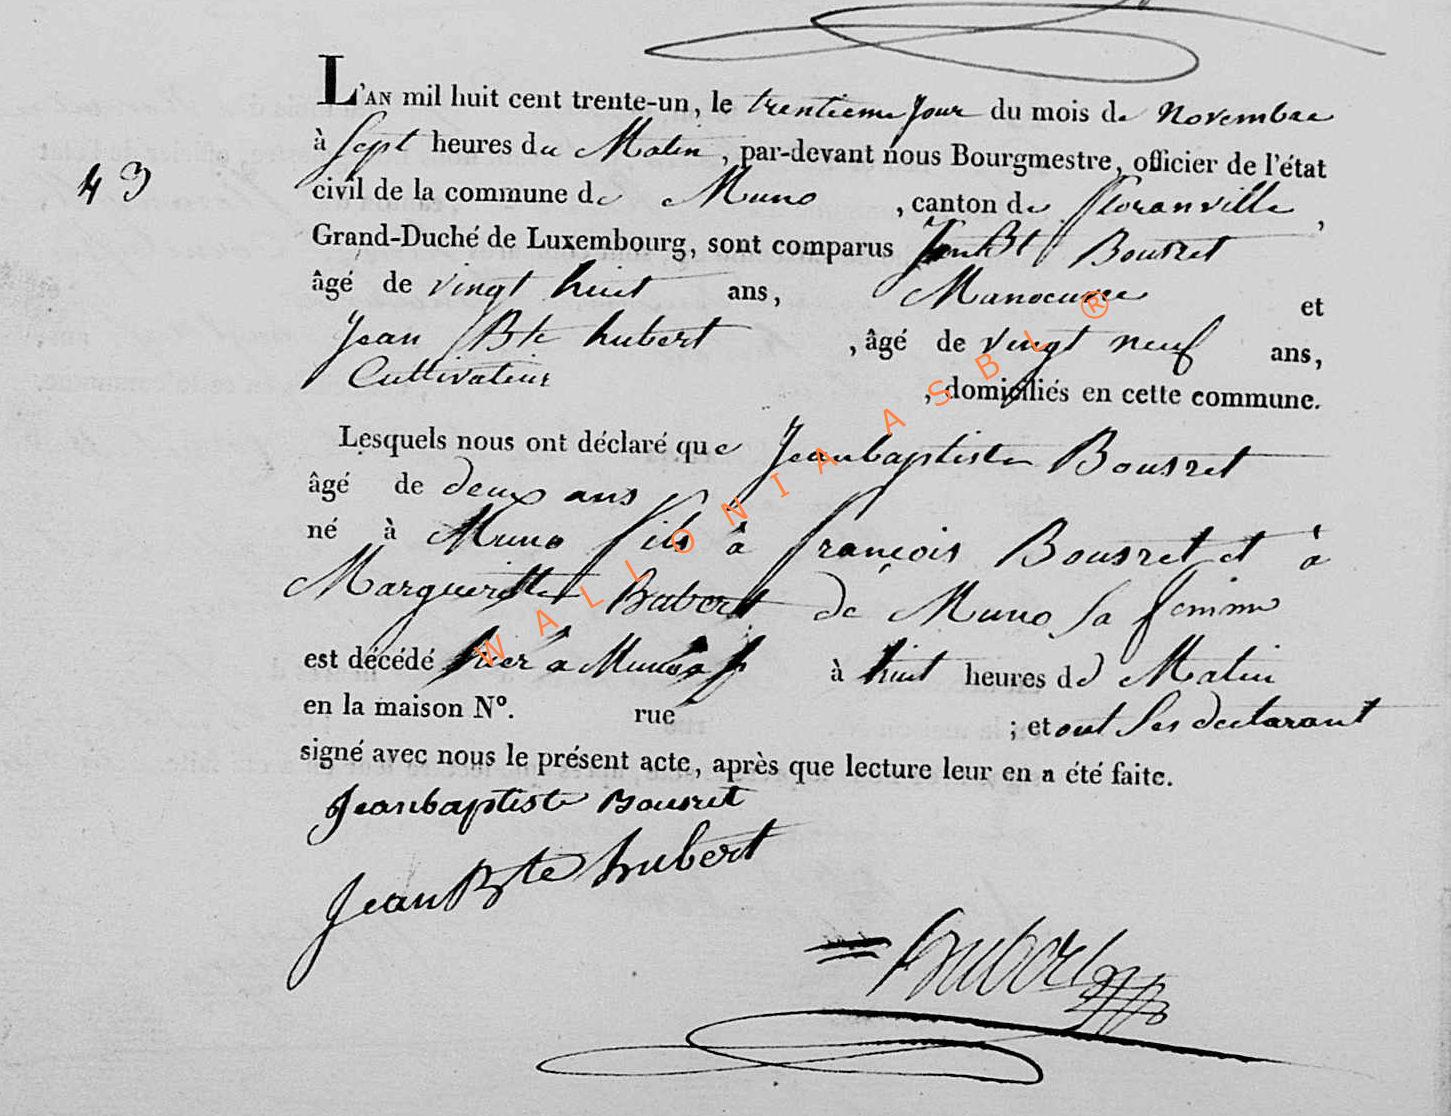 L'AN mil huit cent trente-un, le trentieme jour du mois de novembre
43
à Sept heures du Matin, par-devant nous Bourgmestre, officier de l'état
civil de la commune de Muno , canton de floranville ,
Grand-Duché de Luxembourg, sont comparus Jean Bt Bousret
âgé de vingt huit ans, Manoeuvre et
Jean Bte hubert , âgé de vingt neuf ans,
Cultivateur , domiciliés en cette commune.
Lesquels nous ont déclaré que Jeanbaptiste Bousret
âgé de deux ans
né à Muno fils à françois Bousret et à
Margueritte hubert de Muno sa femme
est décédé hier a Muno à huit heures du Matin
en la maison N°. rue ; et ont Les declarant
signé avec nous le présent acte, après que lecture leur en a été faite.
Jeanbaptiste Bousret
Jean Bte hubert
hubert
WALLONIA ASBL ®